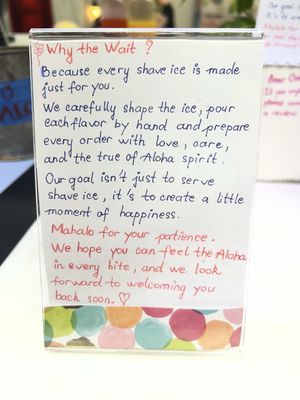 Why the Wait ?
Because every shave ice is made
just for you.
We carefully shape the ice, pour
each flavor by hand and prepare
every order with love, care,
and the true of Aloha spirit.
Our goal isn't just to serve
shave ice, it's to create a little
moment of happiness.
Mahalo for your patience.
We hope you can feel the Aloha
in every bite, and we look
forward to welcoming you
back soon. ♡